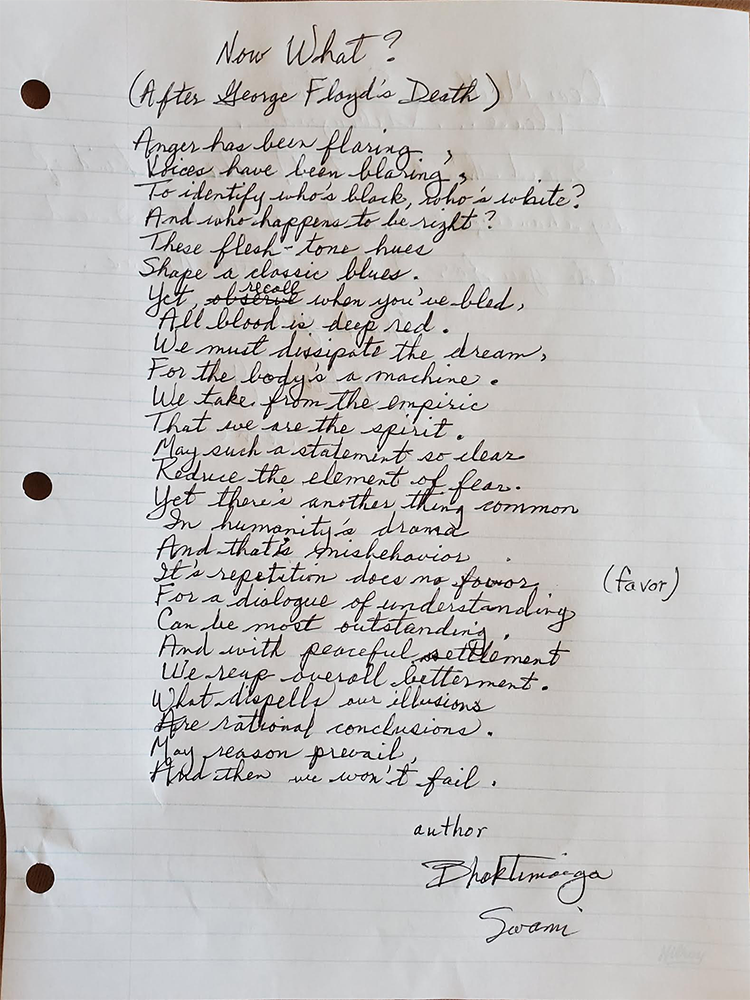 Now What?
(After George Floyd's Death)
Anger has been flaring,
Voices have been blaring,
To identify who's black, who's white?
And who happens to be right?
These flesh-tone hues
Shape a classic blues.
Yet, observe recall when you've bled,
All blood is deep red.
We must dissipate the dream,
For the body's a machine.
We take from the empiric
That we are the spirit.
May such a statement so clear
Reduce the element of fear.
Yet there's another thing common
In humanity's drama
And that's misbehavior
It's repetition does no favor, (favor)
For a dialogue of understanding
Can be most outstanding.
And with peaceful settlement
We reap overall betterment.
What dispells our illusions
Are rational conclusions.
May reason prevail,
And then we won't fail.
author
Bhaktimarga
Swami